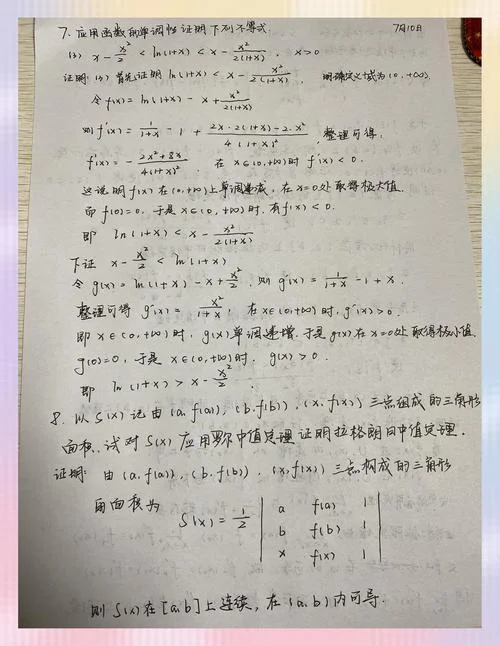 7. 应用函数的单调性证明下列不等式 7月10日
(3) x - x²/2 < ln(1+x) < x - x²/2(1+x), x>0
证明: (3) 首先证明 ln(1+x) < x - x²/2(1+x), 明确定义域为(0,+∞).
令 f(x) = ln(1+x) - x + x²/2(1+x)
则 f'(x) = 1/(1+x) - 1 + (2x·2(1+x) - 2·x²)/4(1+x)², 整理可得:
f'(x) = - (2x²+8x)/4(1+x)² 在 x∈(0,+∞)时 f'(x) < 0.
这说明 f(x) 在 (0,+∞) 上单调递减, 在 x=0 处取得极大值.
而 f(0)=0, 于是 x∈(0,+∞)时, 有 f(x) < 0.
即 ln(1+x) < x - x²/2(1+x)
下证 x - x²/2 < ln(1+x)
令 g(x) = ln(1+x) - x + x²/2, 则 g'(x) = 1/(1+x) - 1 + x.
整理可得 g'(x) = x²/(1+x), 在 x∈(0,+∞)时, g'(x) > 0.
即 x∈(0,+∞)时, g(x) 单调递增. 于是 g(x) 在 x=0 处取得极小值
g(0)=0, 于是 x∈(0,+∞)时, g(x) > 0.
即 ln(1+x) > x - x²/2.
8. 以 S(x) 记由 (a, f(a)), (b, f(b)), (x, f(x)) 三点组成的三角形
面积, 试对 S(x) 应用罗尔中值定理证明拉格朗日中值定理.
证明: 由 (a, f(a)), (b, f(b)), (x, f(x)) 三点构成的三角形
面积为
S(x) = 1/2 | a f(a) 1
b f(b) 1
x f(x) 1 |
则 S(x) 在 [a,b] 上连续, 在 (a,b) 内可导.